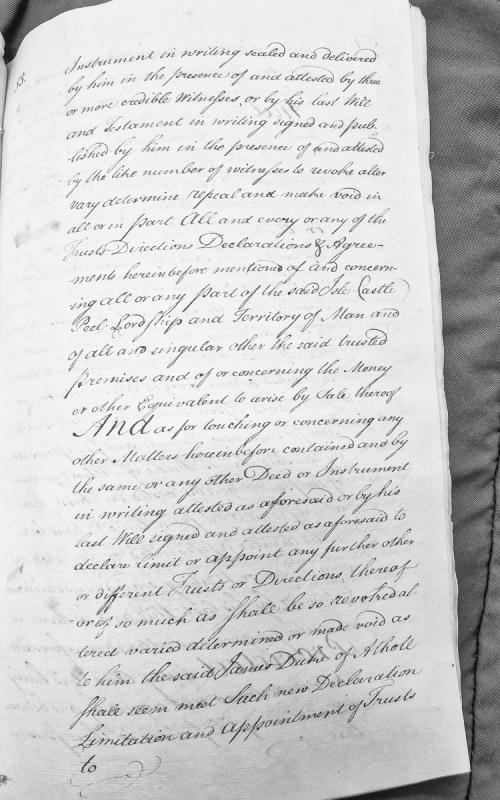 Instrument in writing sealed and delivered
by him in the presence of and attested by three
or more credible Witnesses, or by his last Will
and Testament in writing signed and pub-
lished by him in the presence of and attested
by the like number of witnesses to revoke alter
vary determine repeal and make void in
all or in part All and every or any of the
Trusts Directions Declarations & Agree-
ments hereinbefore mentioned of and concern-
ing all or any part of the said Isle Castle
Peel Lordship and Territory of Man and
of all and singular other the said trusted
premises and of or concerning the Money
or other Equivalent to arise by Sale thereof
And as for touching or concerning any
other Matters hereinbefore contained and by
the same or any other Deed or Instrument
in writing attested as aforesaid or by his
last Will signed and attested as aforesaid to
declare limit or appoint any further other
or different Trusts or Directions thereof
or of so much as shall be so revoked al-
tered varied determined or made void as
to him the said James Duke of Atholl
shall seem meet Such new Declaration
Limitation and Appointment of Trusts
to